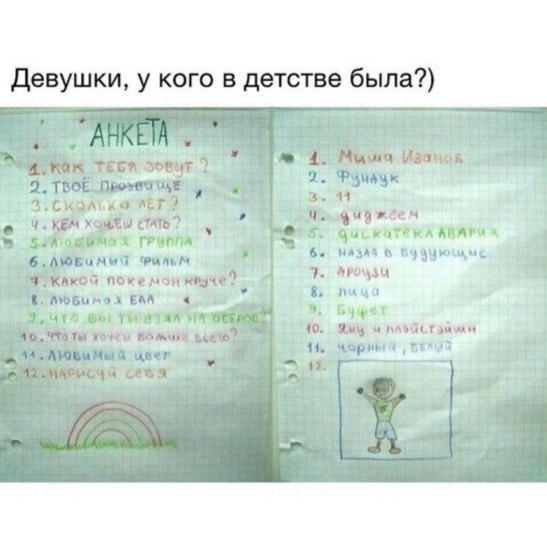 Девушки, у кого в детстве была?)
АНКЕТА
1. КАК ТЕБЯ ЗОВУТ?
2. ТВОЁ ПРОЗВИЩЕ
3. СКОЛЬКО ЛЕТ?
4. КЕМ ХОЧЕШ СТАТЬ?
5. ЛЮБИМАЯ ГРУППА
6. ЛЮБИМЫЙ ФИЛЬМ
7. КАКОЙ ПОКЕМОН КРУЧЕ?
8. ЛЮБИМАЯ ЕДА
9. ЧТО БЫ ТЫ ВЗЯЛ НА ОСТРОВ?
10. ЧТО ТЫ ХОЧЕШ БОЛЬШЕ ВСЕГО?
11. ЛЮБИМЫЙ ЦВЕТ
12. НАРИСУЙ СЕБЯ
1. Миша Иванов
2. Фундук
3. 11
4. диджеем
5. дискатека АВАРИЯ
6. НАЗАД в будующие
7. Ароузи
8. пица
9. Буфет
10. Яну и плэйстэйшн
11. чорный, БЕЛЫЙ
12.